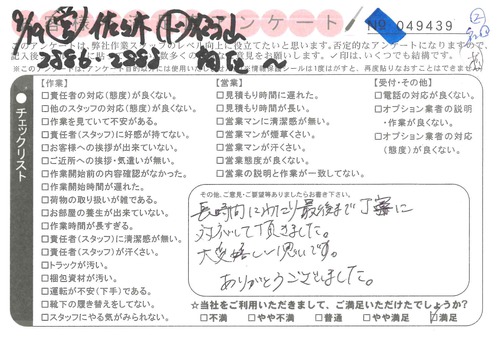 アンケート No 049439
このアンケートは、弊社作業スタッフのレベル向上に役立てたいと思います。否定的なアンケートになりますので、
【作業】
□責任者の対応(態度)が良くない。
□他のスタッフの対応(態度)が良くない。
□作業を見ていて不安がある。
□責任者(スタッフ)に好感が持てない。
□お客様への挨拶が出来ていない。
□ご近所への挨拶・気遣いが無い。
□作業開始前の内容確認がなかった。
□作業開始時間が遅れた。
□荷物の取り扱いが雑である。
□お部屋の養生が出来ていない。
□作業時間が長すぎる。
□責任者(スタッフ)に清潔感が無い。
□責任者(スタッフ)が汗くさい。
□トラックが汚い。
□梱包資材が汚い。
□運転が不安(下手)である。
□靴下の履き替えをしてない。
□スタッフにやる気がみられない。
チェックリスト
【営業】
□見積もり時間に遅れた。
□見積もり時間が長い。
□営業マンに清潔感が無い。
□営業マンが煙草くさい。
□営業マンが汗くさい。
□営業態度が良くない。
□営業の説明と作業が一致してない。
【受付・その他】
□電話の対応が良くない。
□オプション業者の説明
・作業が良くない。
□オプション業者の対応
(態度)が良くない。
その他、ご意見・ご要望等ありましたらお書き下さい。
長時間にわたり最後まで丁寧に
対応して頂きました。
大変嬉しい思いです。
ありがとうございました。
☆当社をご利用いただきまして、ご満足いただけたでしょうか?
□不満 □やや不満 □普通 □やや満足 ☑満足